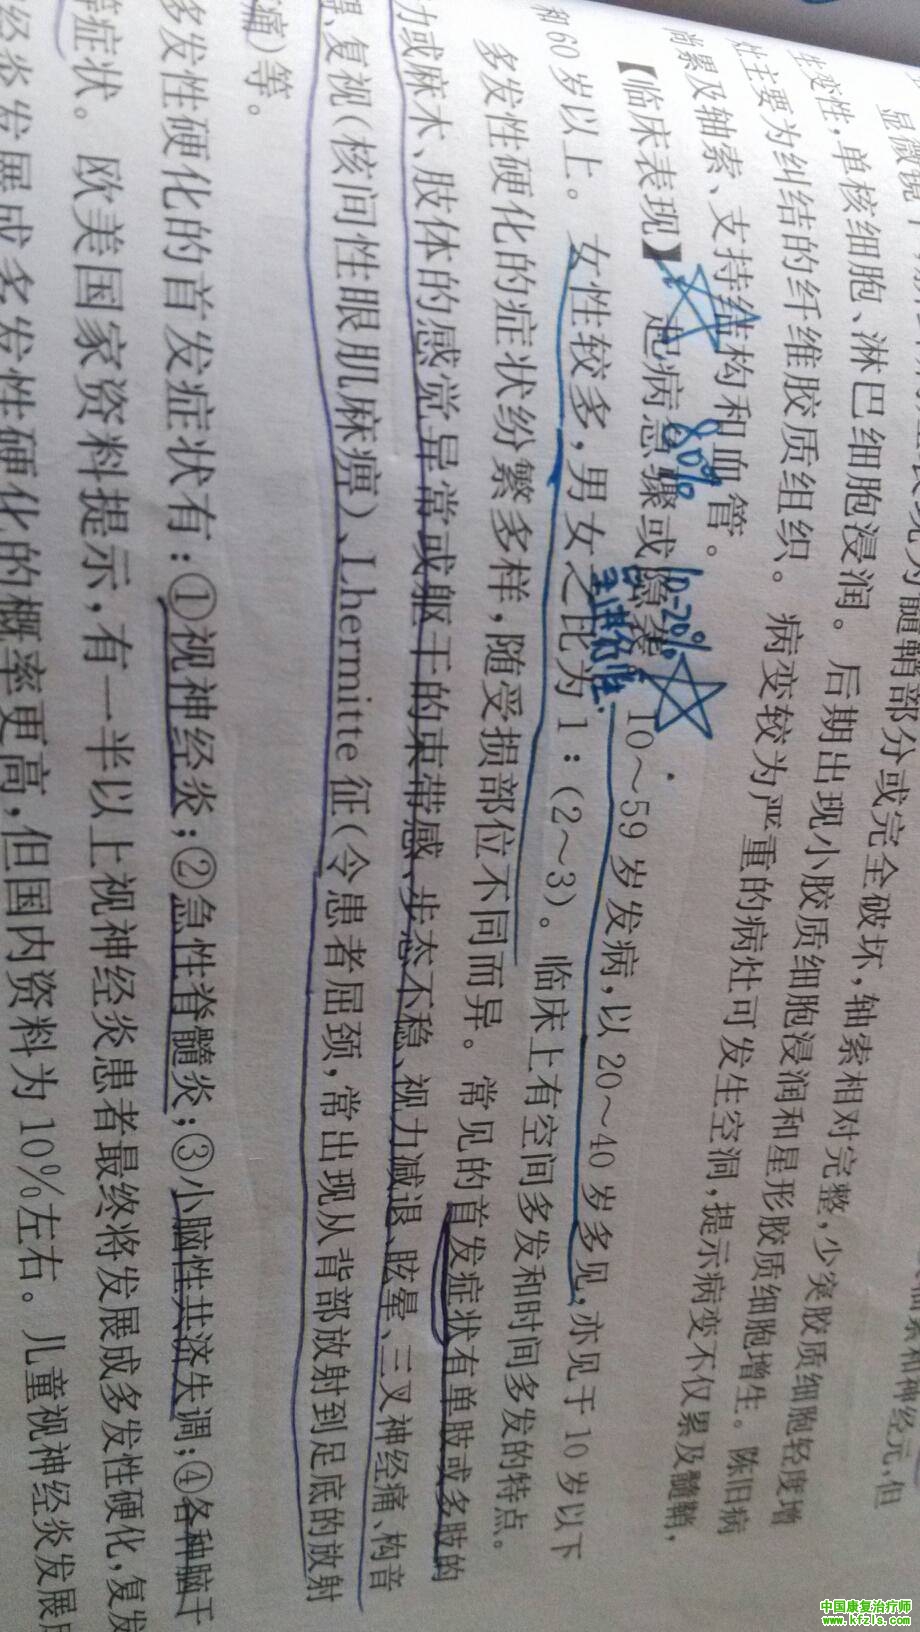 显微镜下
髓鞘部分或完全破坏,轴索相对完整,少突胶质细胞轻度增
生变性,单核细胞、淋巴细胞浸润。后期出现小胶质细胞浸润和星形胶质细胞增生。陈旧病
灶主要为纠结的纤维胶质组织。病变较为严重的病灶可发生空洞,提示病变不仅累及髓鞘,
尚累及轴索、支持结构和血管。
80% 10-20%
【临床表现】 起病急骤或隐袭,10~59岁发病,以20~40岁多见,亦见于10岁以下
和60岁以上。女性较多,男女之比为1:(2~3)。临床上有空间多发和时间多发的特点。
多发性硬化的症状纷繁多样,随受损部位不同而异。常见的首发症状有单肢或多肢的
力或麻木、肢体的感觉异常或躯干的束带感、步态不稳、视力减退、眩晕、三叉神经痛、构音
、复视(核间性眼肌麻痹)、Lhermitte征(令患者屈颈,常出现从背部放射到足底的放射
痛)等。
多发性硬化的首发症状有:①视神经炎;②急性脊髓炎;③小脑性共济失调;④各种脑干
等症状。欧美国家资料提示,有一半以上视神经炎患者最终将发展成多发性硬化,复发
经炎发展成多发性硬化的概率更高,但国内资料为10%左右。儿童视神经炎发展
中国康复治疗师
www.kfzls.com